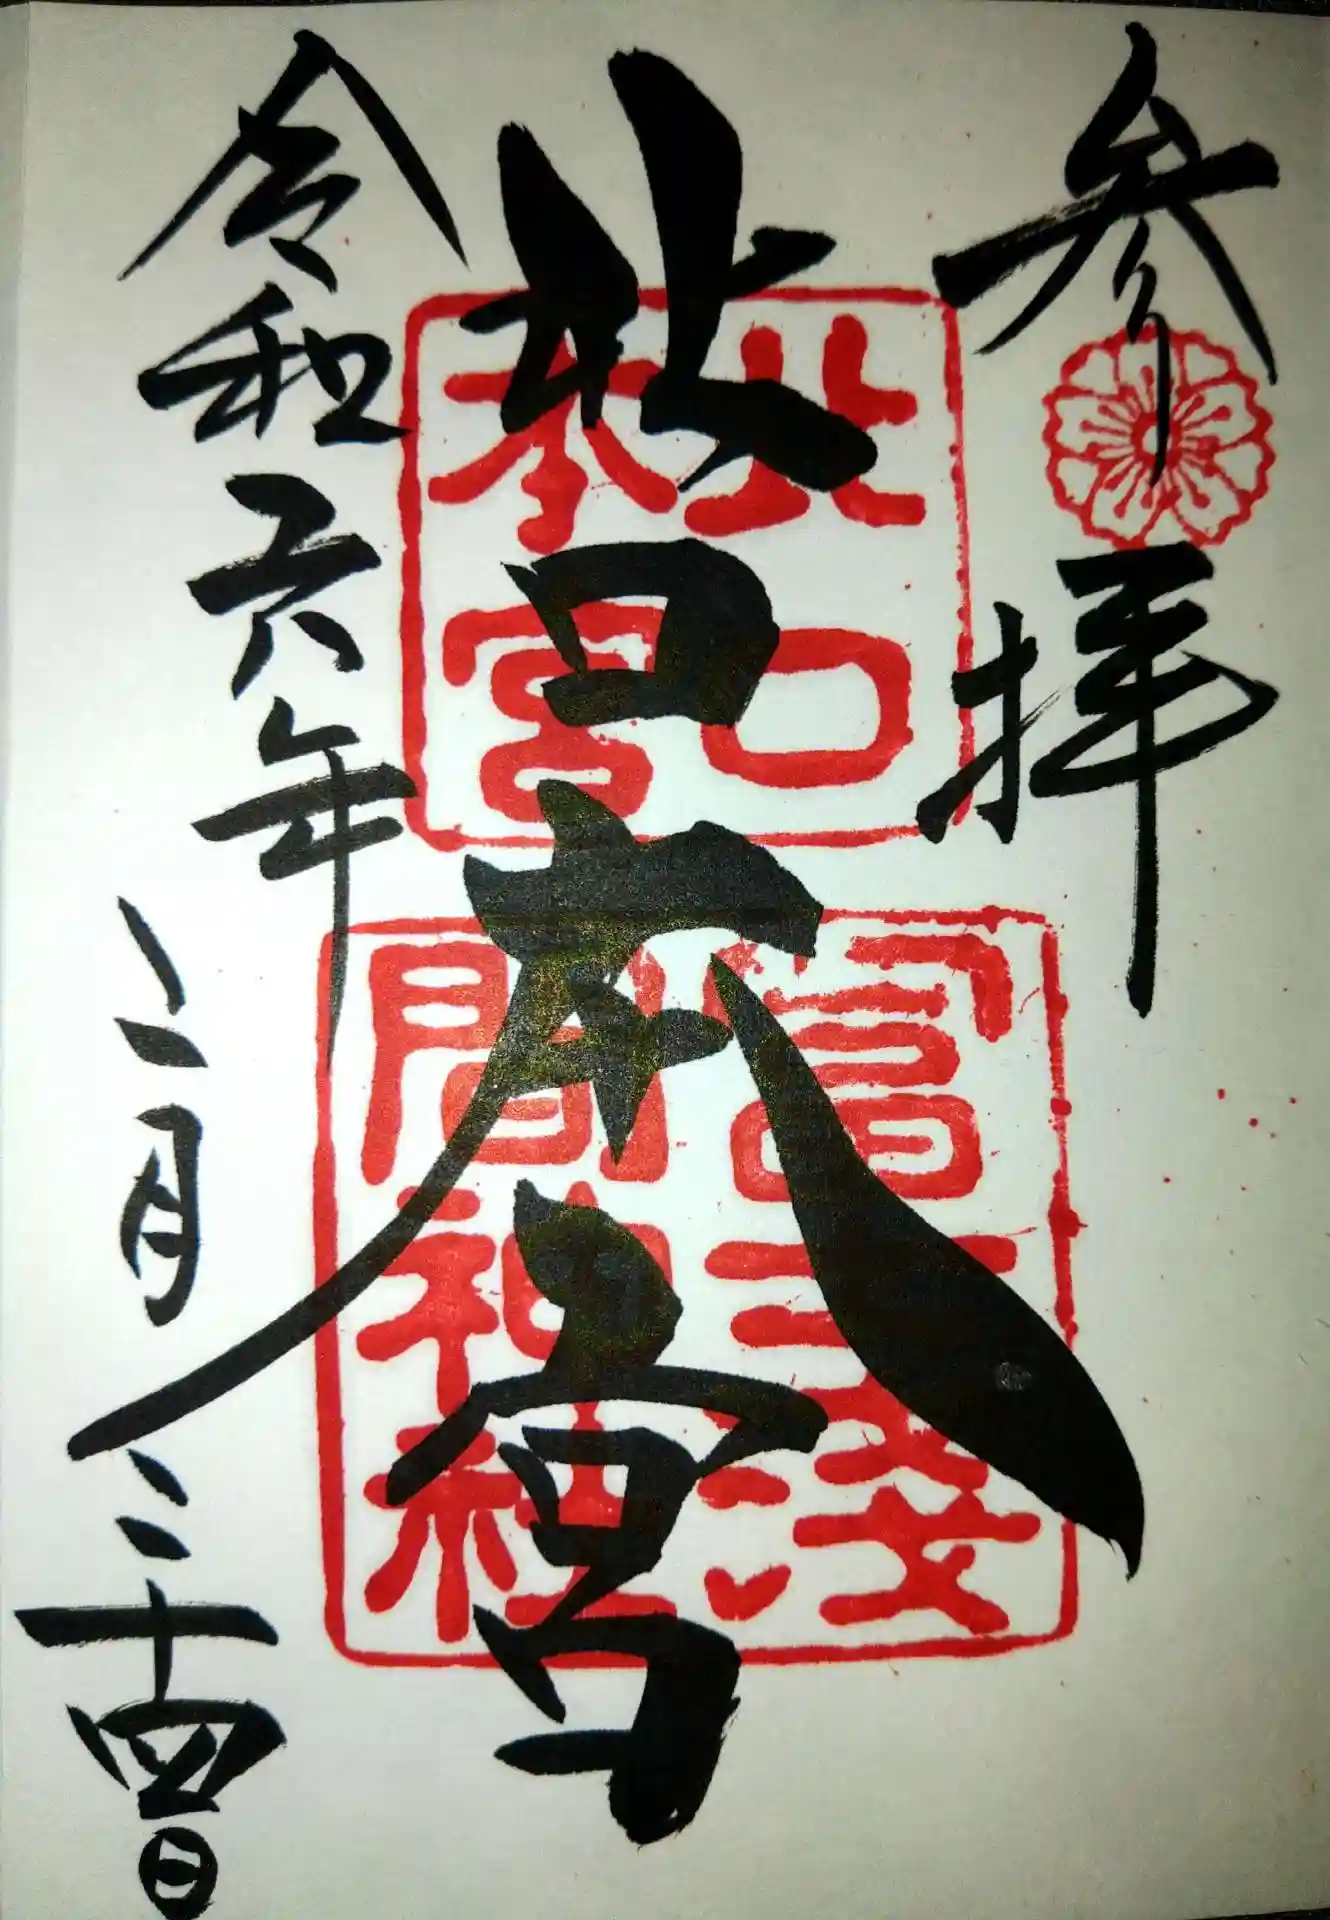 参拝
北口本宮
北口
本宮
冨士浅
間神社
令和六年
二月二十四日